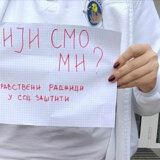 ЧИЈИ СМО
МИ?
ЗДРАВСТВЕНИ РАДНИЦИ
У СОЦ ЗАШТИТИ